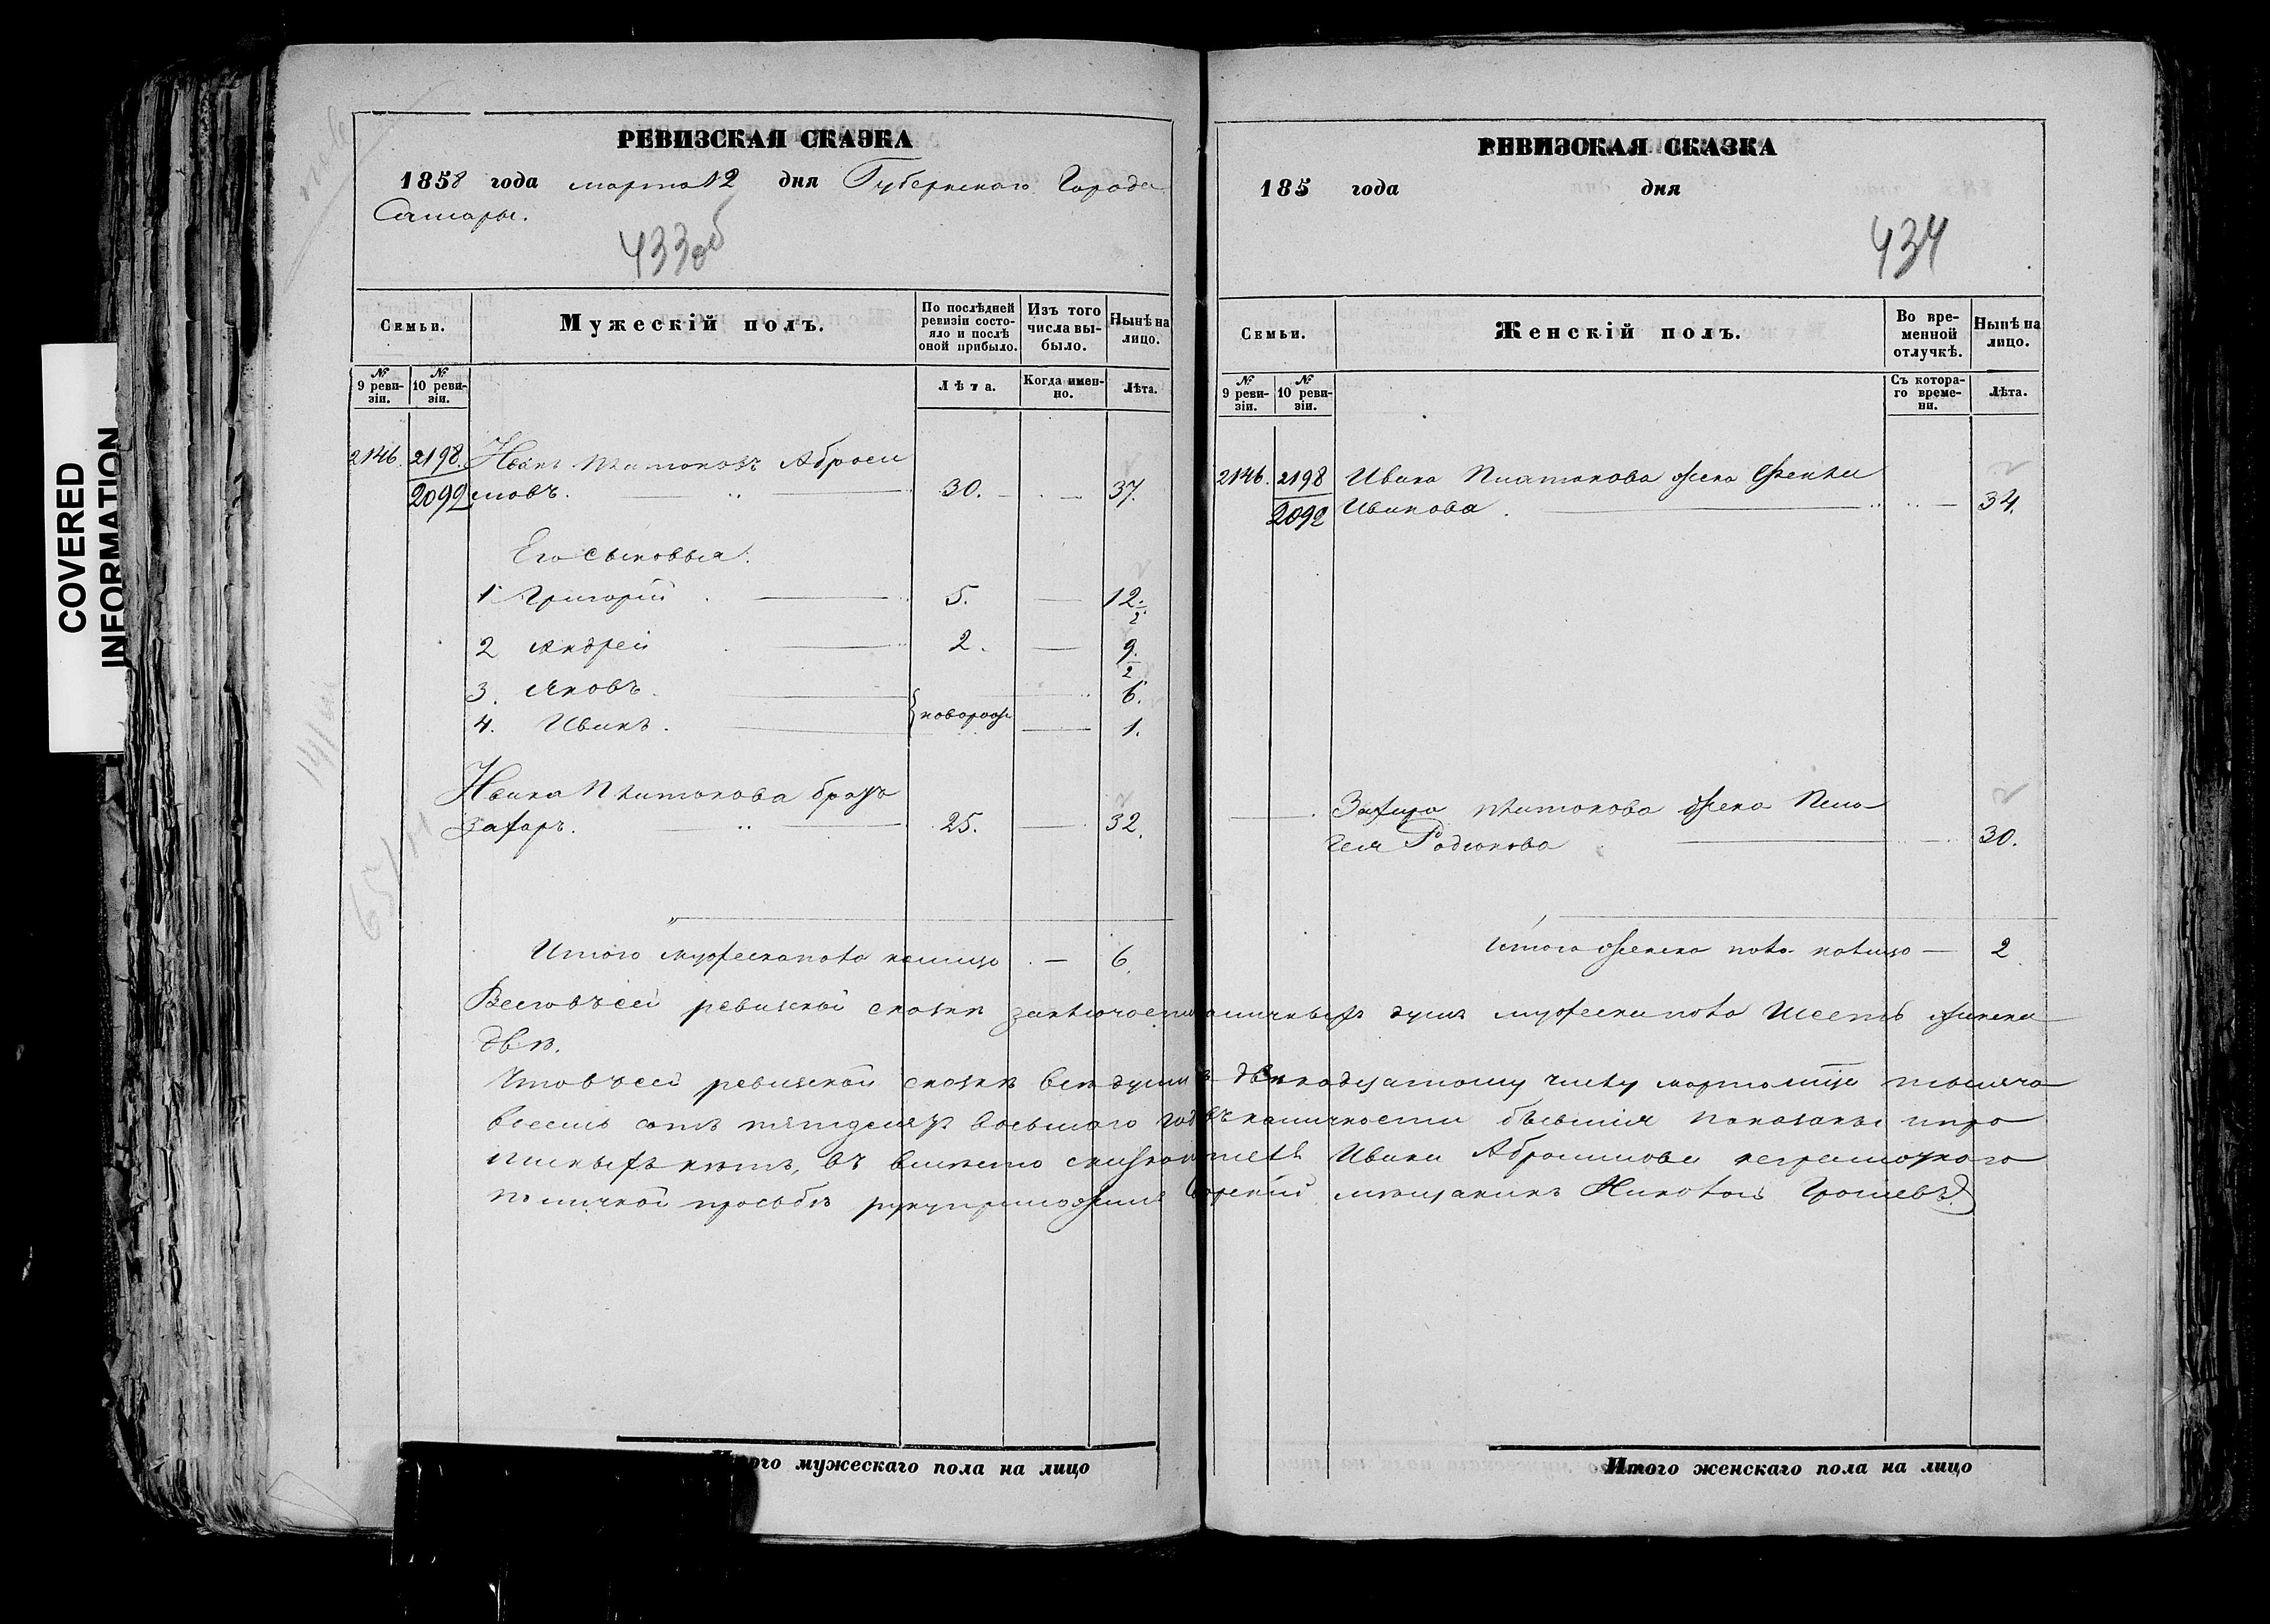 COVERED
INFORMATION
РЕВИЗСКАЯ СКАЗКА
1858 года марта 12 дня Губернскаго Города
Самары.
433об
Семьи.
Мужескій полъ.
По послѣдней ревизіи состояло и послѣ оной прибыло.
Изъ того числа выбыло.
Нынѣ на лицо.
№ 9 ревизіи.
№ 10 ревизіи.
Лѣта.
Когда именно.
Лѣта.
2146. 2198. Иванъ Платоновъ Аброси
2092 мовъ. 30. 37.
Его сыновья:
1 Григорій 5. 12.
2
2 Андрей 2. 9.
2
3. Яковъ. 6.
новорож
4. Иванъ. 1.
Ивана Платонова братъ
Захаръ. 25. 32.
Итого мужеска пола налицо 6.
Итого мужескаго пола на лицо
РЕВИЗСКАЯ СКАЗКА
185 года дня
434
Семьи.
Женскій полъ.
Во временной отлучкѣ.
Нынѣ на лицо.
№ 9 ревизіи.
№ 10 ревизіи.
Съ котораго времени.
Лѣта.
2146. 2198 Ивана Платонова жена
2092 Иванова. 34.
Захара Платонова жена Пела
гея Родионова 30.
Итого женска пола налицо — 2
Всего въ сей ревизской сказкѣ заключается наличныхъ душъ мужеска пола шесть женска
двѣ.
Что въ сей ревизской сказкѣ всѣ души къ двенадцатому числу марта мѣсяца тысяча
восемь сотъ пятдесятъ восьмаго года въ наличности бывшія показаны и про
писныхъ нѣтъ, въ Ивана Абросимова неграмотнаго
по личной прозьбѣ руку приложилъ мѣщанинъ Николай
Итого женскаго пола на лицо